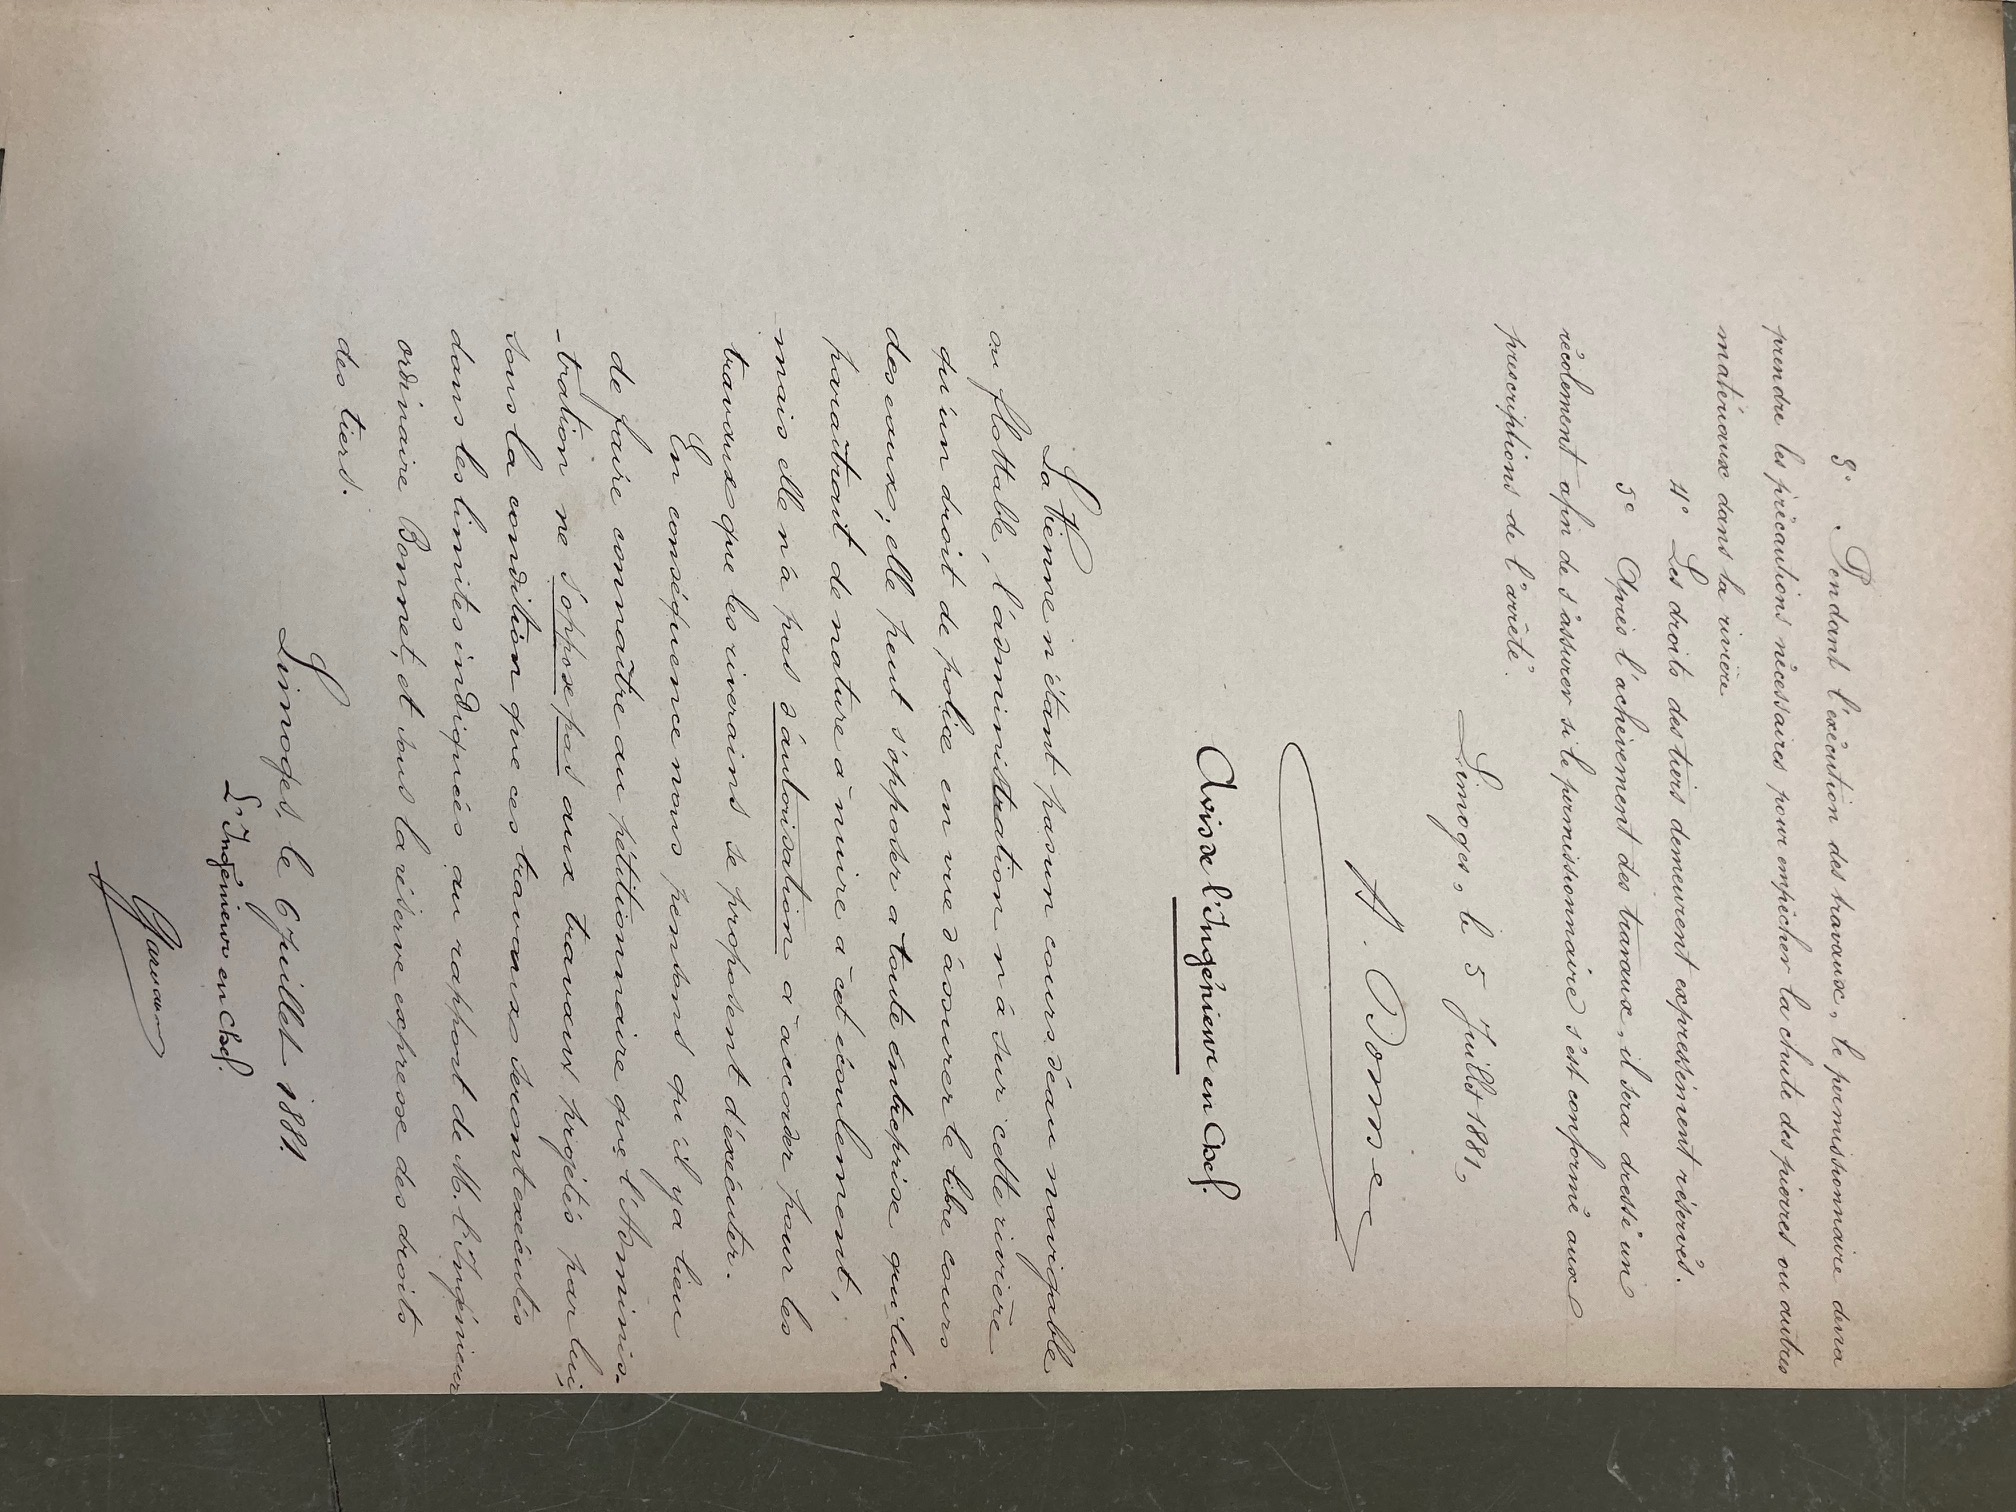 3° Pendant l'exécution des travaux, le permissionnaire devra
prendre les précautions nécessaires pour empêcher la chute des pierres ou autres
matériaux dans la rivière
4° Les droits des tiers demeurent expressément réservés.
5° Après l'achèvement des travaux, il sera dressé un
récolement afin de s'assurer si le permissionnaire s'est conformé aux
prescriptions de l'arrêté.
Limoges, le 5 Juillet 1881,
A. Bonnet
Avis de l'Ingénieur en Chef.
La Vienne n'étant pas un cours d'eau navigable
ou flottable, l'administration n'a sur cette rivière
qu'un droit de police en vue d'assurer le libre cours
des eaux; elle peut s'opposer à toute entreprise qui lui
paraîtrait de nature à nuire à cet écoulement,
mais elle n'a pas d'autorisation à accorder pour les
travaux que les riverains se proposent d'exécuter.
En conséquence nous pensons qu'il y a lieu
de faire connaître au pétitionnaire que l'Adminis-
-tration ne s'oppose pas aux travaux projetés par lui,
sous la condition que ces travaux seront exécutés
dans les limites indiquées au rapport de M. l'Ingénieur
ordinaire Bonnet, et sous la réserve expresse des droits
des tiers.
Limoges, le 6 Juillet 1881.
L'Ingénieur en Chef.